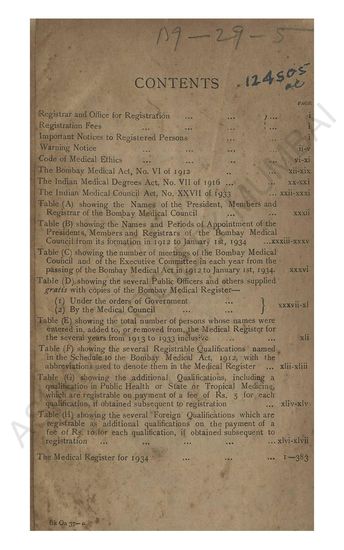 D9-29-5
CONTENTS
124505
PAGE
Registrar and Office for Registration ... ... ... i
Registration Fees ... ... ... i
Important Notices to Registered Persons ... ... i
Warning Notice ... ... ... ii-v
Code of Medical Ethics ... ... ... vi-xi
The Bombay Medical Act, No. VI of 1912 ... ... xii-xix
The Indian Medical Degrees Act, No. VII of 1916 ... ... xx-xxi
The Indian Medical Council Act, No. XXVII of 1933 ... xxii-xxxi
Table (A) showing the Names of the President, Members and
Registrar of the Bombay Medical Council ... ... xxxii
Table (B) showing the Names and Periods of Appointment of the
Presidents, Members and Registrars of the Bombay Medical
Council from its formation in 1912 to January 1st, 1934 ...xxxiii-xxxv
Table (C) showing the number of meetings of the Bombay Medical
Council and of the Executive Committee in each year from the
passing of the Bombay Medical Act in 1912 to January 1st, 1934. xxxvi
Table (D) showing the several Public Officers and others supplied
gratis with copies of the Bombay Medical Register—
(1) Under the orders of Government ...
(2) By the Medical Council ... ... } xxxvii-xl
Table (E) showing the total number of persons whose names were
entered in, added to, or removed from, the Medical Register for
the several years from 1913 to 1933 inclusive ... ... xli
Table (F) showing the several Registrable Qualifications named
in the Schedule to the Bombay Medical Act, 1912, with the
abbreviations used to denote them in the Medical Register ... xlii-xliii
Table (G) showing the additional Qualifications, including a
qualification in Public Health or State or Tropical Medicine,
which are registrable on payment of a fee of Rs. 5 for each
qualification, if obtained subsequent to registration ... xliv-xlv
Table (H) showing the several Foreign Qualifications which are
registrable as additional qualifications on the payment of a
fee of Rs. 10 for each qualification, if obtained subsequent to
registration ... ... ... ... ...xlvi-xlvii
The Medical Register for 1934 ... ... ... 1—383
MUMBAI